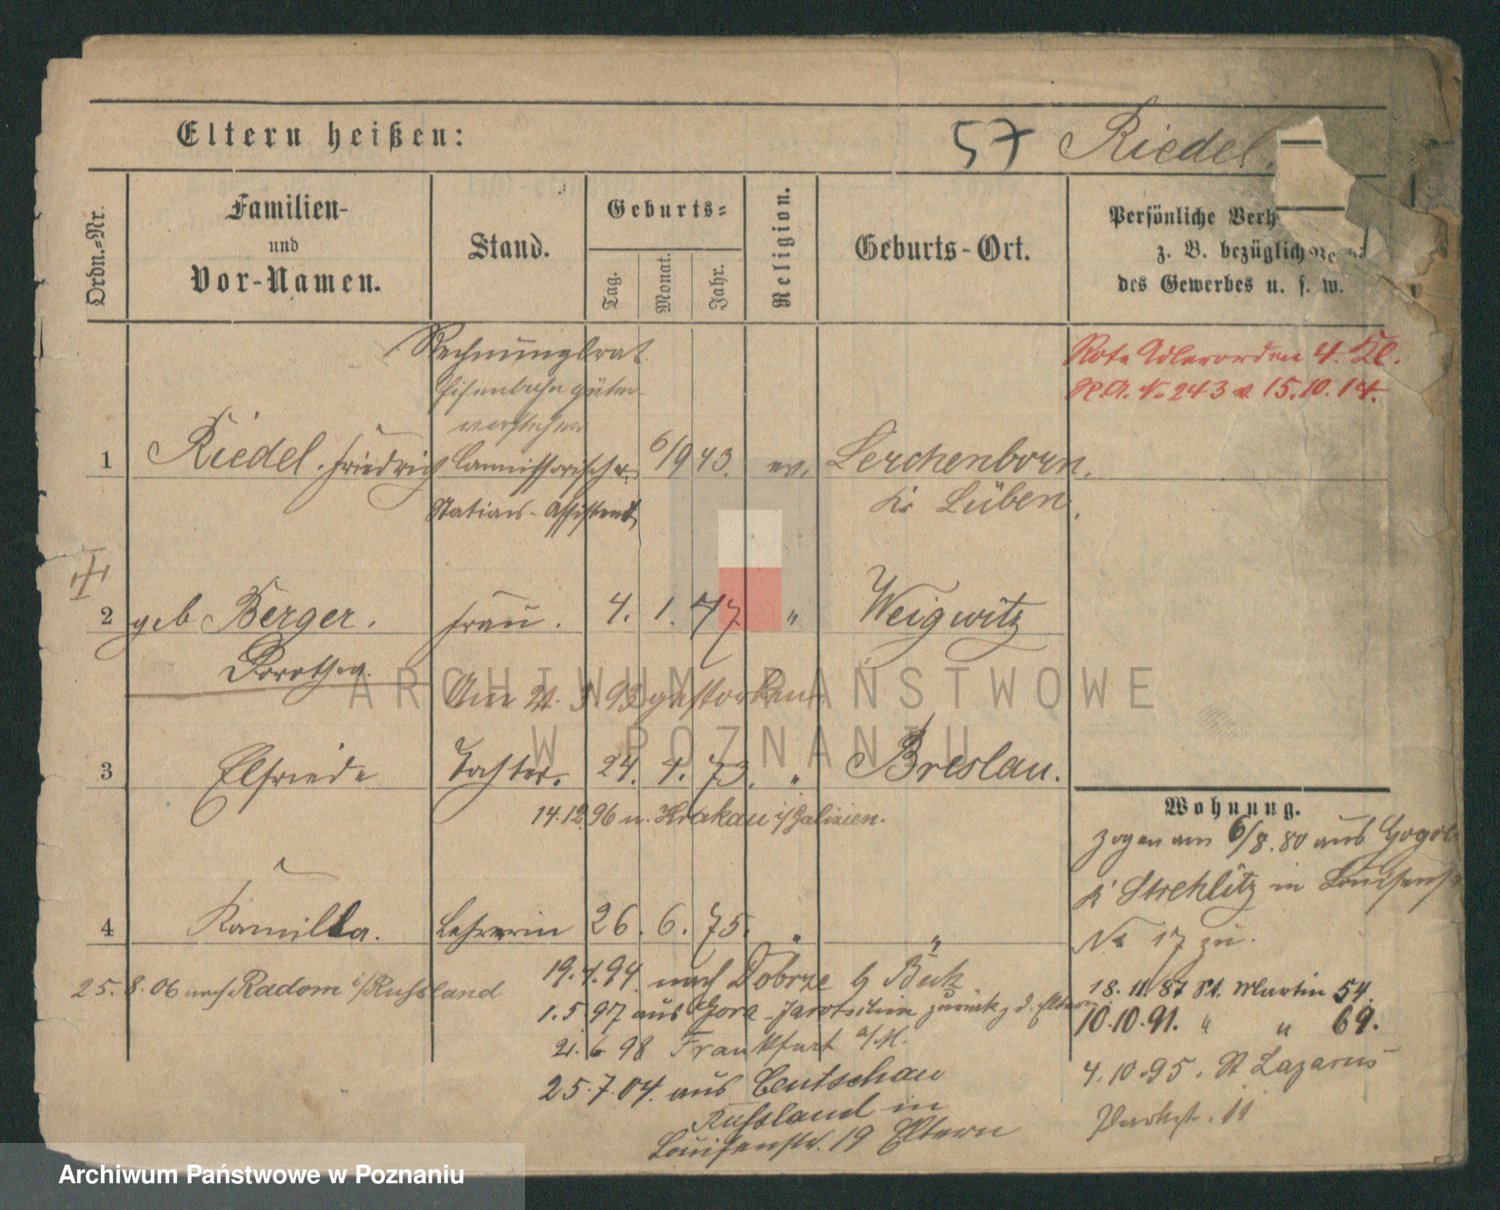 Eltern heißen:
57 Riedel.
Ordn.=Nr.
Familien-
und
Vor-Namen.
Stand.
Geburts=
Tag.
Monat.
Jahr.
Religion.
Geburts-Ort.
Persönliche Verh
z. B. bezüglich
des Gewerbes u. s. w.
Rechnungsrat
Eisenbahn güter
vorsteher
Rote Adlerorden 4. Kl.
N. 243 v. 15.10.14.
1 Riedel. Friedrich commissorischer 6/9 43. ev. Lerchenborn.
Stations-Assistent Kr Lüben.
2 geb Berger. Frau. 4. 1. 47 " Weigwitz
Dorothea.
Am 21. 3. 93 gestorben
3 Elfriede Tochter. 24. 4. 73. " Breslau.
14.12.96 n. Krakau i/Galizien.
4 Kamilla. Lehrerin 26. 6. 75. " "
25.8.06 nach Radom i/Russland
19.4.94. nach Dobrze b Buk
1.5 97 aus Gora-Jarotschin zurück z. d. Eltern
21.6 98 Frankfurt a/M.
25.7.04. aus Czentschau
Russland in
Louisenstr. 19 Eltern
Wohnung.
zogen am 6/8. 80 aus Gogol
Kr Strehlitz in Louisenst
No 17 zu.
18.11.87 St. Martin 54.
10.10.91. " " 69.
4.10.95. St Lazarus
Parkstr. 11
ARCHIWUM PAŃSTWOWE
W POZNANIU
Archiwum Państwowe w Poznaniu